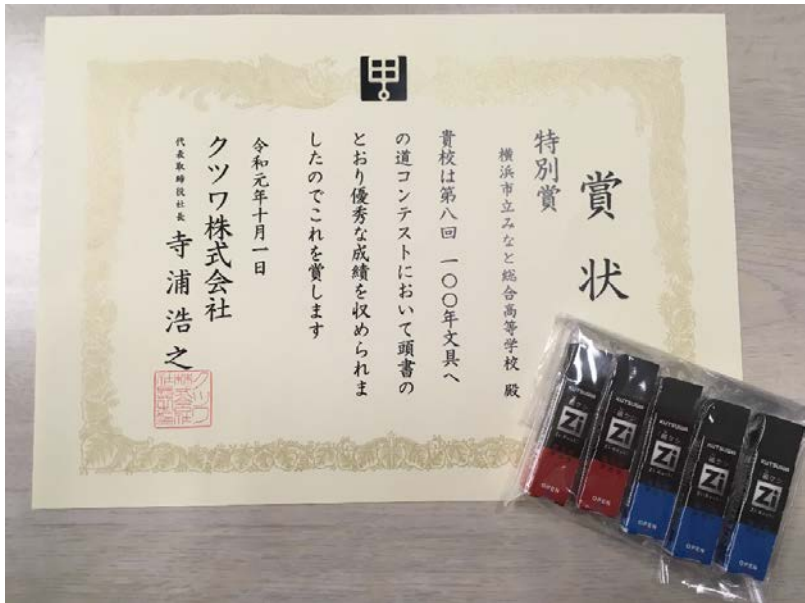 賞状
特別賞
横浜市立みなと総合高等学校 殿
貴校は第八回 一〇〇年文具へ
の道コンテストにおいて頭書の
とおり優秀な成績を収められま
したのでこれを賞します
令和元年十月一日
クツワ株式会社
代表取締役社長 寺浦浩之
KUTSUWA
Zi
OPEN
KUTSUWA
Zi
OPEN
KUTSUWA
Zi
OPEN
KUTSUWA
Zi
OPEN
KUTSUWA
Zi
OPEN